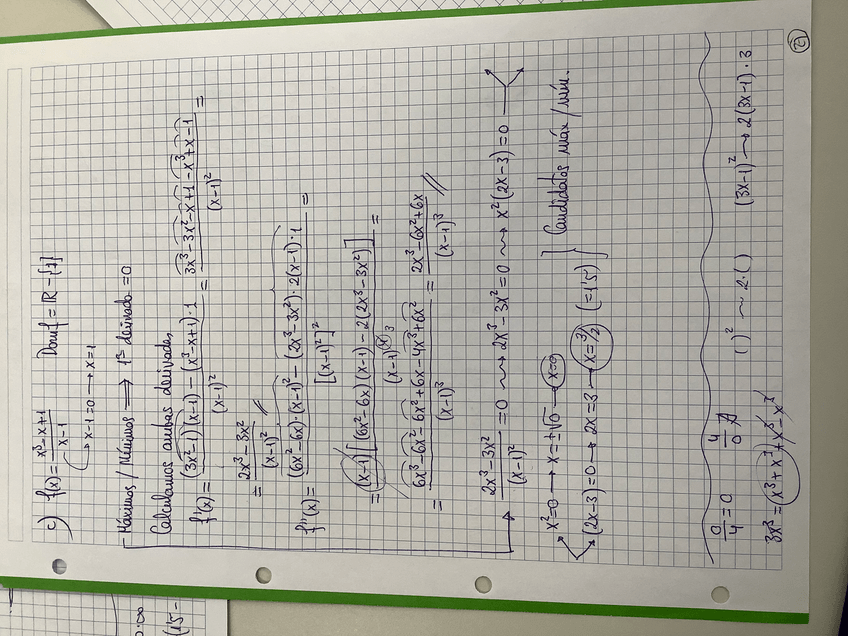 c) f(x) = (x³-x+1)/(x-1)   Domf = ℝ - {1}
x-1=0 → x=1
Máximos/Mínimos ⟹ 1ª derivada = 0
Calculamos ambas derivadas,
f'(x) = ((3x²-1)(x-1) - (x³-x+1)·1)/(x-1)² = (3x³-3x²-x+1-x³+x-1)/(x-1)² =
= (2x³-3x²)/(x-1)² //
f''(x) = ((6x²-6x)·(x-1)² - (2x³-3x²)·2(x-1)·1)/[(x-1)²]² =
= (x-1)[(6x²-6x)(x-1) - 2(2x³-3x²)]/(x-1)⁴ ³ =
= (6x³-6x²-6x²+6x-4x³+6x²)/(x-1)³ = (2x³-6x²+6x)/(x-1)³ //
(2x³-3x²)/(x-1)² = 0 ⇝ 2x³-3x²=0 ⇝ x²(2x-3)=0
x²=0 → x=±√0 → x=0
(2x-3)=0 → 2x=3 → x=3/2 (=1'5)
Candidatos máx/mín.
0/4 = 0   4/0 ∄   ( )² ~ 2·( )   (3x-1)² ⇝ 2(3x-1)·3
3x³ = x³+x³+x³+x³-x³